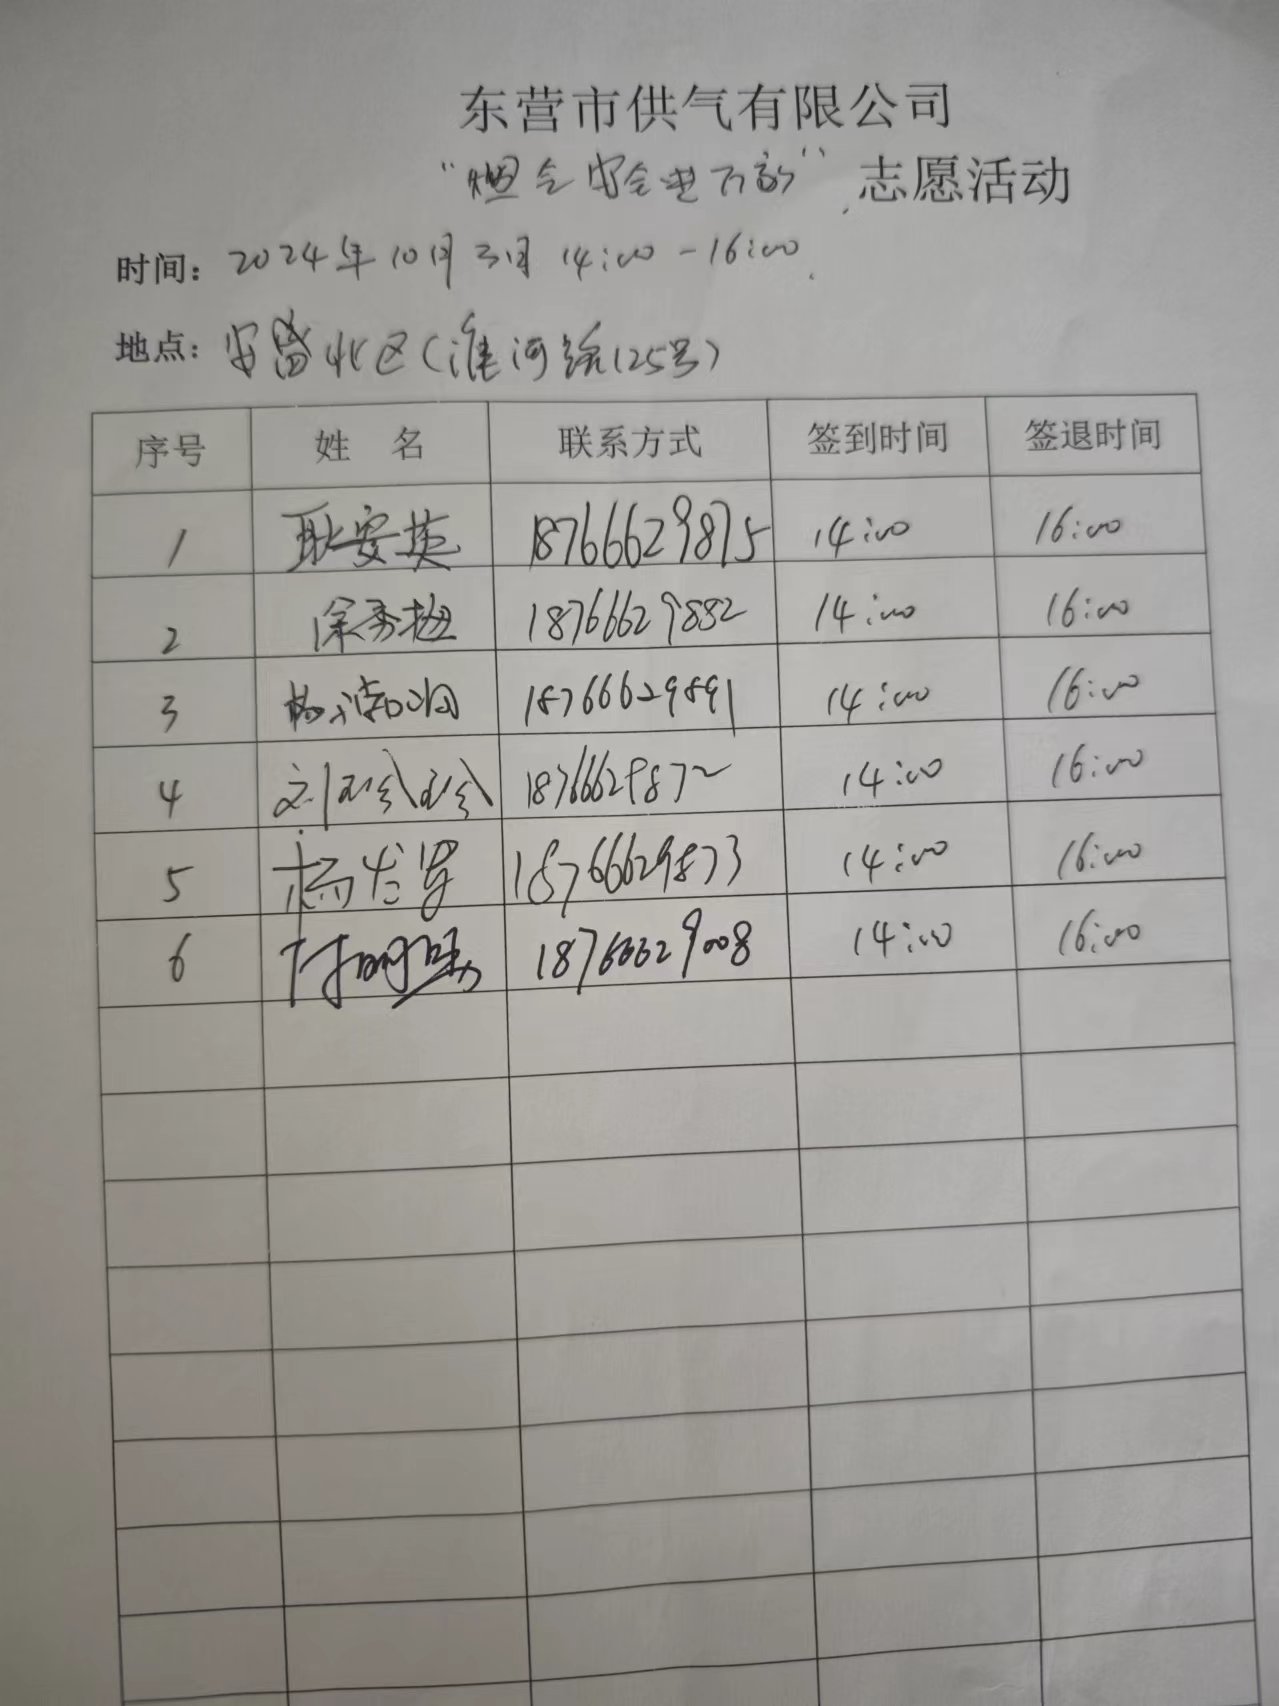 东营市供气有限公司
“燃气安全进万家”志愿活动
时间：2024年10月3日 14:00-16:00
地点：安盛北区(淮河路125号)
序号 姓 名 联系方式 签到时间 签退时间
1 耿安英 18766629875 14:00 16:00
2 徐秀梅 18766629882 14:00 16:00
3 杨 18766629891 14:00 16:00
4 刘玲玲 18766629872 14:00 16:00
5 杨 18766629873 14:00 16:00
6 18766629008 14:00 16:00